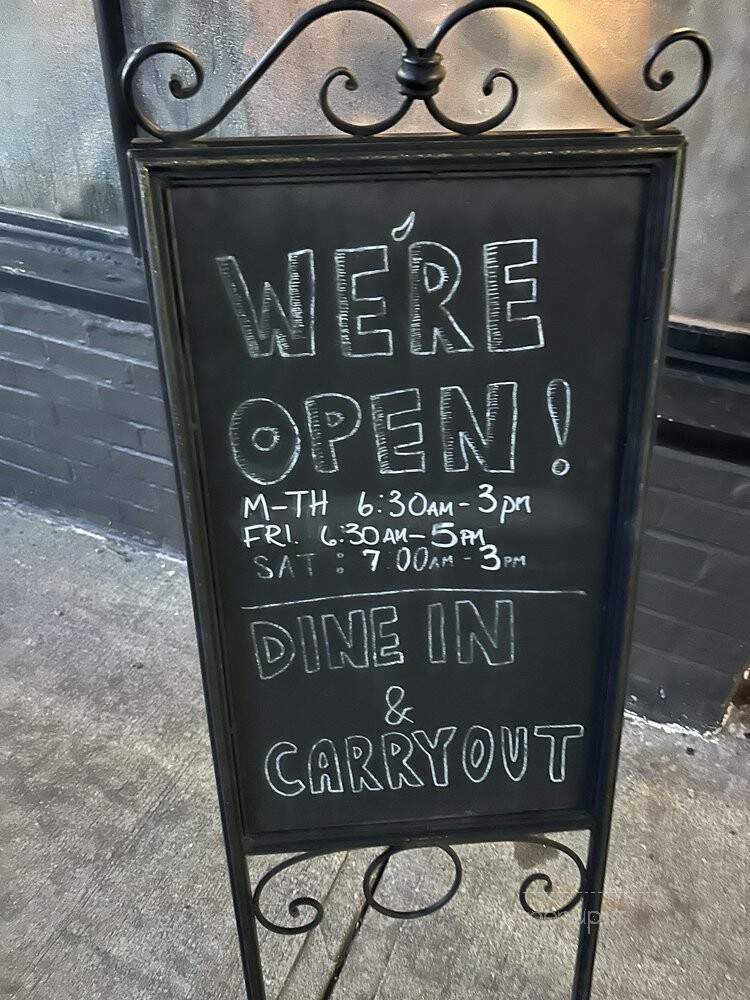 WE'RE
OPEN!
M-TH 6:30AM-3pm
FRI. 6:30AM-5PM
SAT: 7:00AM-3PM
DINE IN
&
CARRYOUT